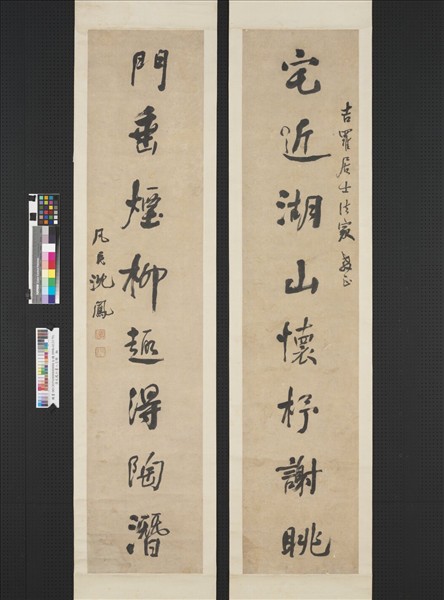 吉羅居士法家教正
宅近湖山懷抒謝眺
門垂煙柳趣得陶潛
凡民沈鳳